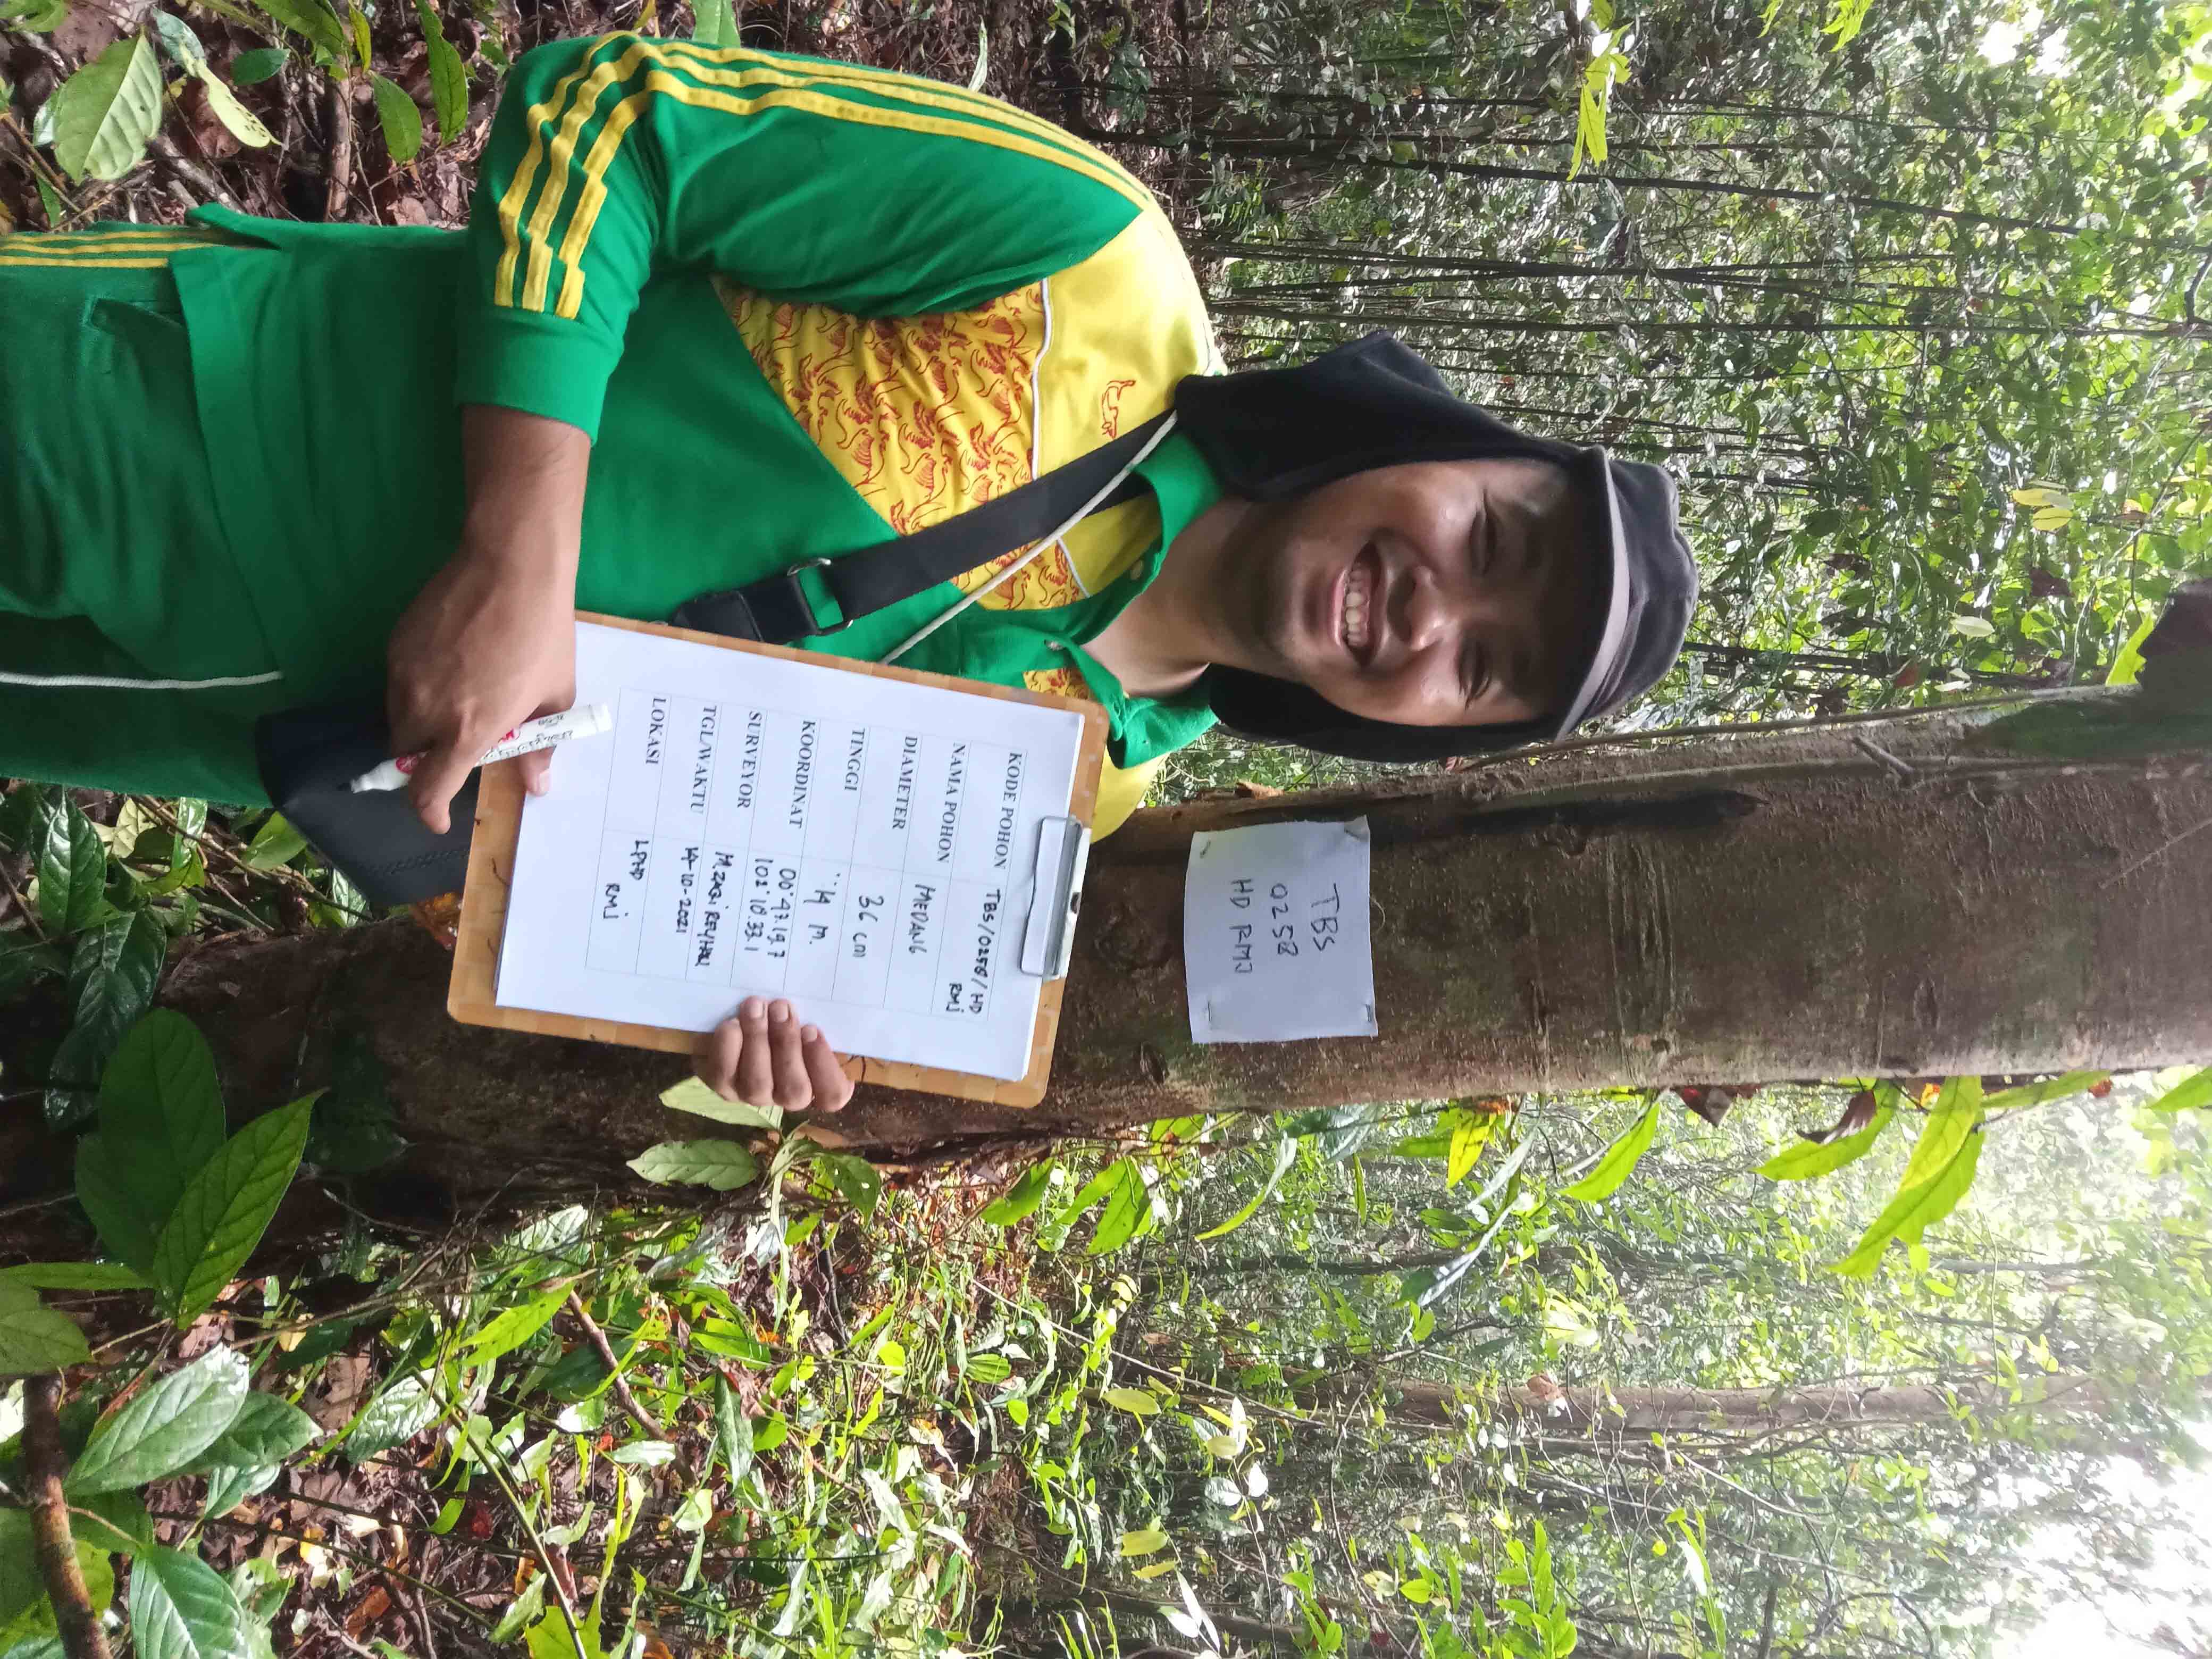 KODE POHON TBS/0258/HD
RMJ
NAMA POHON MEDANG
DIAMETER 36 cm
TINGGI 14 m.
KOORDINAT 00° 47. 19. 7
102° 18. 33. 1
SURVEYOR M. ZAQI REYHAN
TGL/WAKTU 14-10-2021
LOKASI LPHD
RMJ
TBS
0258
HD RMJ